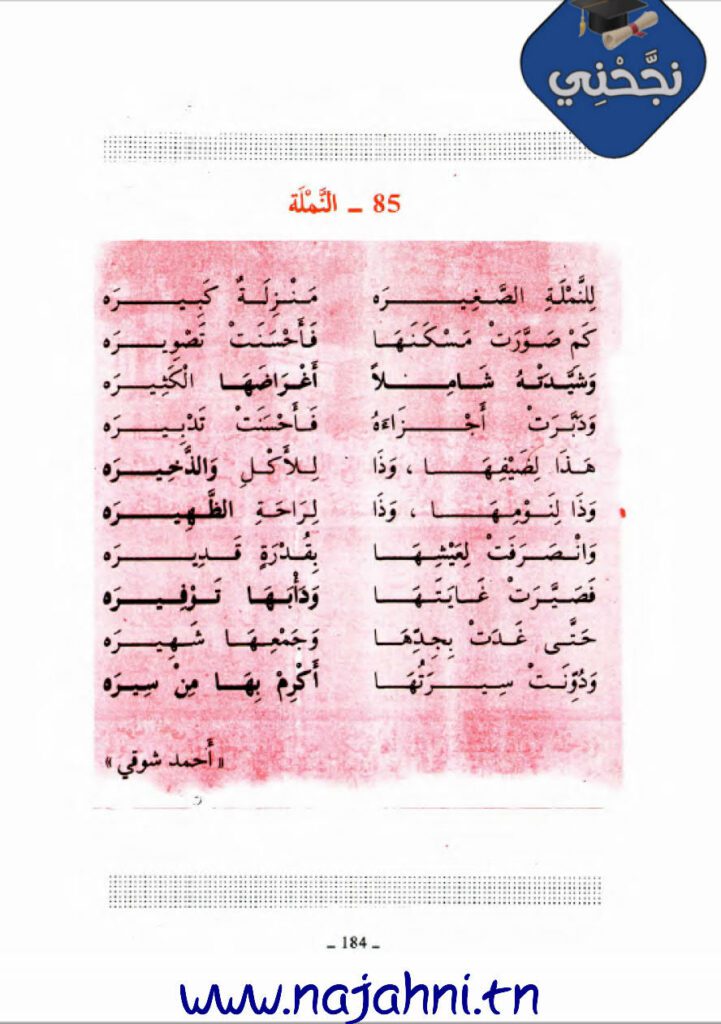 نجَّحْنِي
85 ـ النَّمْلَة
لِلنَّمْلَةِ الصَّغِيـرَه مَنْزِلَةٌ كَبِيـرَه
كَمْ صَوَّرَتْ مَسْكَنَهَا فَأَحْسَنَتْ تَصْوِيـرَه
وَشَيَّدَتْهُ شَامِـلاً أَغْرَاضَهَا الْكَثِيرَه
وَدَبَّرَتْ أَجْزَاءَهُ فَأَحْسَنَتْ تَدْبِيـرَه
هَذَا لِضَيْفِهَا ، وَذَا لِلأَكْلِ وَالذَّخِيـرَه
وَذَا لِنَوْمِهَا ، وَذَا لِرَاحَةِ الظَّهِيـرَه
وَانْصَرَفَتْ لِعَيْشِهَا بِقُدْرَةٍ قَدِيـرَه
فَصَيَّرَتْ غَايَتَهَا وَدَأْبَهَا تَوْفِيـرَه
حَتَّى غَدَتْ بِجِدِّهَا وَجَمْعِهَا شَهِيـرَه
وَدُوِّنَتْ سِيـرَتُهَا أَكْرِمْ بِهَا مِنْ سِيرَه
« أَحمد شوقي »
ـ 184 ـ
www.najahni.tn